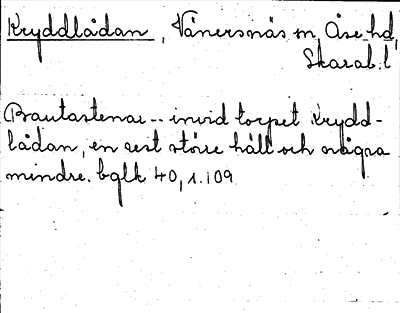 Kryddlådan, Vänersnäs sn, Åse hd,
Skarab. l
Brautastenar -- invid torpet Krydd-
lådan, en rest större häll och några
mindre. bglk 40, s. 109